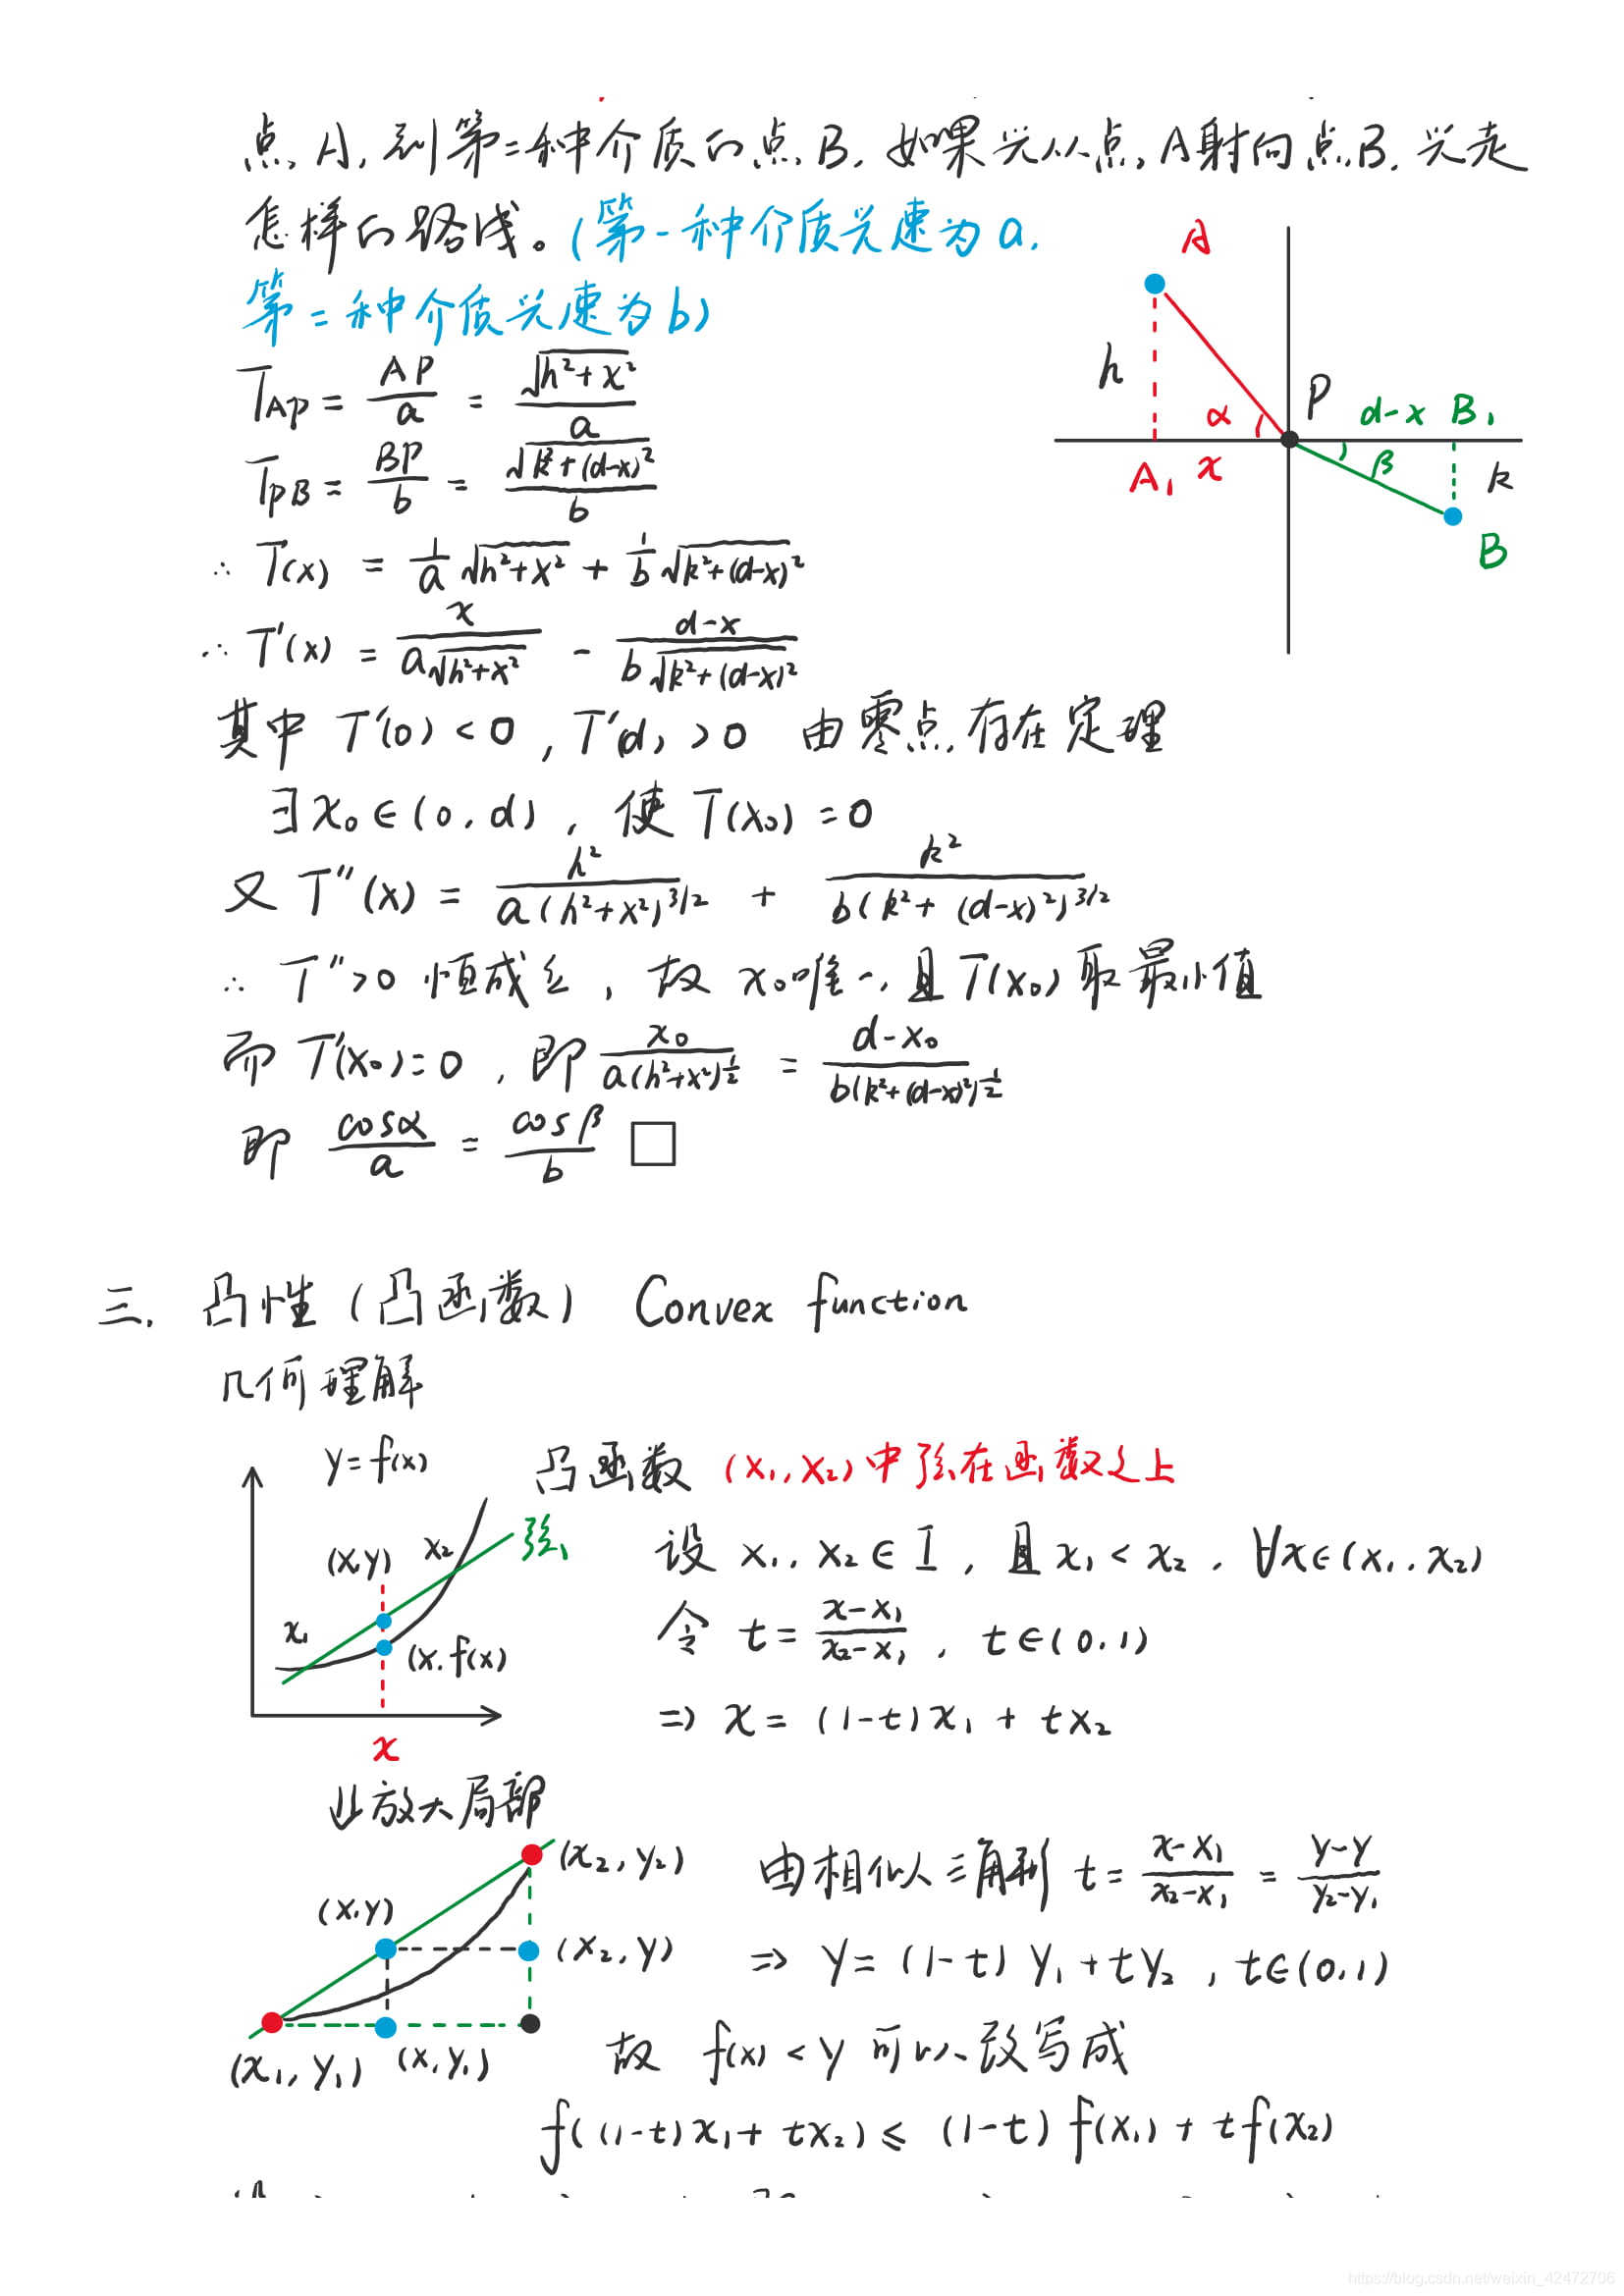 点A,到第二种介质的点B.如果光从点A射向点B.光走
怎样的路线。(第一种介质光速为a.
第二种介质光速为b)
A
h
P
α
d-x B₁
A₁ x
β
k
B
T_AP = AP/a = √(h²+x²)/a
T_PB = BP/b = √(k²+(d-x)²)/b
∴ T(x) = 1/a √(h²+x²) + 1/b √(k²+(d-x)²)
∴ T'(x) = x/(a√(h²+x²)) - (d-x)/(b√(k²+(d-x)²))
其中 T'(0) < 0 , T'(d) > 0 由零点存在定理
∃x₀∈(0,d) , 使 T(x₀) = 0
又 T''(x) = h²/(a(h²+x²)^(3/2)) + k²/(b(k²+(d-x)²)^(3/2))
∴ T''>0 恒成立 , 故 x₀唯一,且T(x₀)取最小值
而 T'(x₀)=0 , 即 x₀/(a(h²+x²)^(1/2)) = (d-x₀)/(b(k²+(d-x)²)^(1/2))
即 cosα/a = cosβ/b □
三. 凸性(凸函数) Convex function
几何理解
y=f(x)
凸函数 (x₁,x₂)中弦在函数之上
弦
(x,y)
x₂
x₁
(x.f(x))
x
设 x₁,x₂∈I , 且x₁<x₂ , ∀x∈(x₁,x₂)
令 t = (x-x₁)/(x₂-x₁) , t∈(0.1)
⇒ x = (1-t)x₁ + tx₂
⇓放大局部
(x₂,y₂)
(x,y)
(x₂,y)
(x₁,y₁) (x,y₁)
由相似三角形 t = (x-x₁)/(x₂-x₁) = (y-y)/(y₂-y₁)
⇒ y = (1-t)y₁+ty₂ , t∈(0,1)
故 f(x) < y 可以改写成
f((1-t)x₁+tx₂) ≤ (1-t)f(x₁) + tf(x₂)
https://blog.csdn.net/weixin_42472706